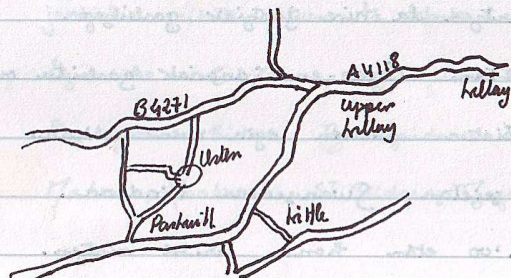 A4118
Killay
B4271
upper
Killay
Ilston
Parkmill
Kittle